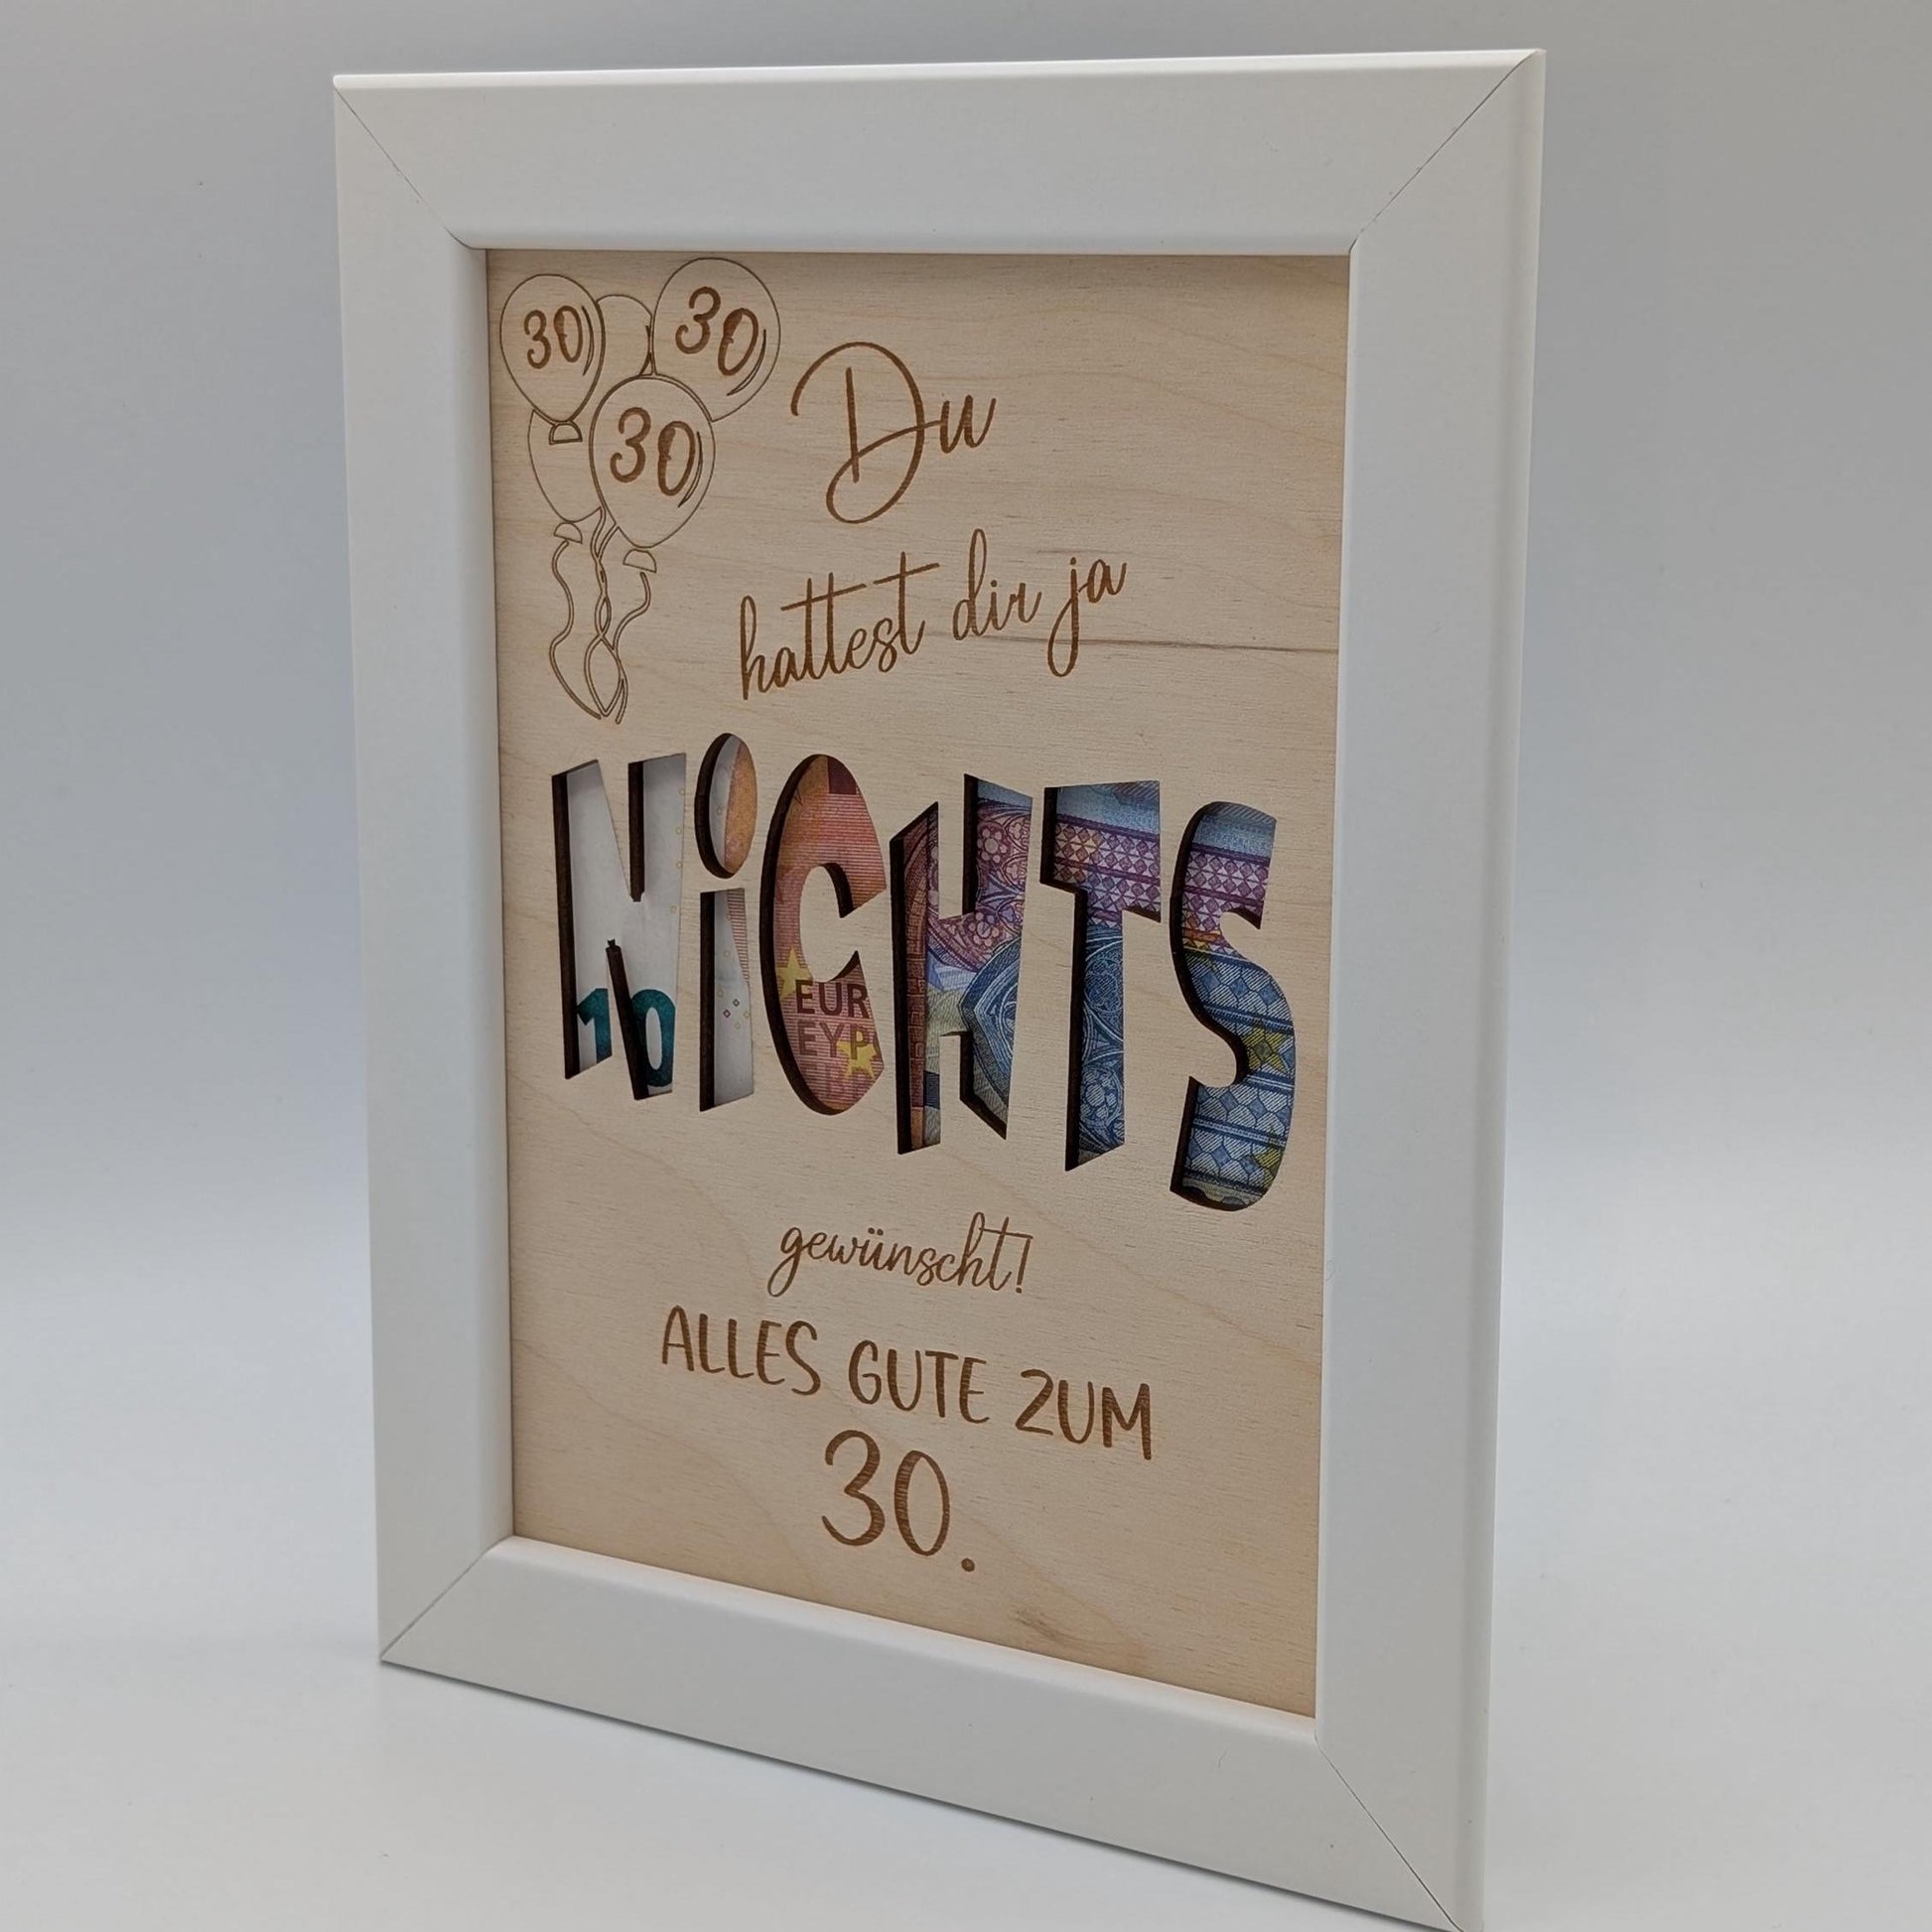 30
30
30
Du
hattest dir ja
NiCHTS
10
EUR
EYP
gewünscht!
ALLES GUTE ZUM
30.